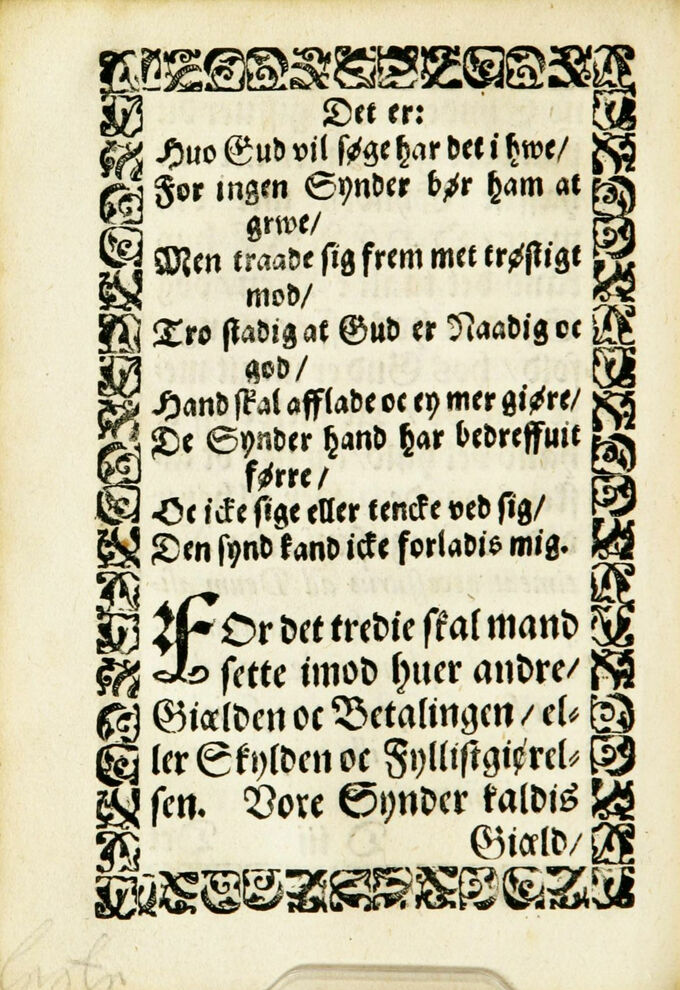 Det er:
Huo Gud vil søge har det i hwe/
For ingen Synder bør ham at
grwe/
Men traade sig frem met trøstigt
mod/
Tro stadig at Gud er Naadig oc
god/
Hand skal afflade oc ey mer giøre/
De Synder hand har bedreffuit
førre/
Oc icke sige eller tencke ved sig/
Den synd kand icke forladis mig.
FOr det tredie skal mand
sette imod huer andre/
Giælden oc Betalingen/ el⸗
ler Skylden oc Fyllistgiørel⸗
sen. Vore Synder kaldis
Giæld/